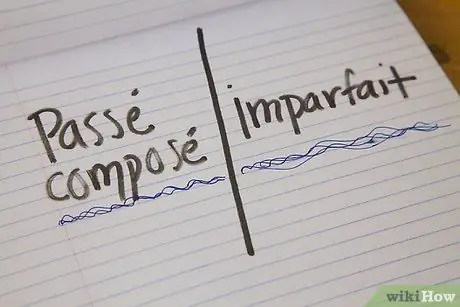 Passé
composé
imparfait
wikiHow